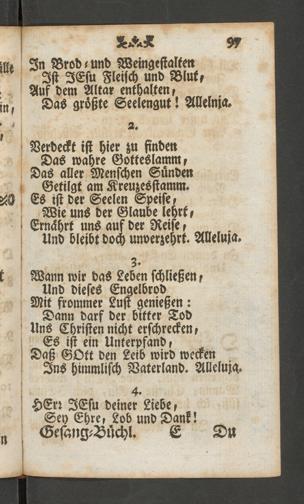 97
In Brod- und Weingestalten
Ist JEsu Fleisch und Blut,
Auf dem Altar enthalten,
Das größte Seelengut! Allelnja.
2.
Verdeckt ist hier zu finden
Das wahre Gotteslamm,
Das aller Menschen Sünden
Getilgt am Kreuzesstamm.
Es ist der Seelen Speise,
Wie uns der Glaube lehrt,
Ernährt uns auf der Reise,
Und bleibt doch unverzehrt. Alleluja.
3.
Wann wir das Leben schließen,
Und dieses Engelbrod
Mit frommer Lust genießen:
Dann darf der bitter Tod
Uns Christen nicht erschrecken,
Es ist ein Unterpfand,
Daß GOtt den Leib wird wecken
Ins himmlisch Vaterland. Alleluja.
4.
HErr JEsu deiner Liebe,
Sey Ehre, Lob und Dank!
Gesang-Büchl. E Du